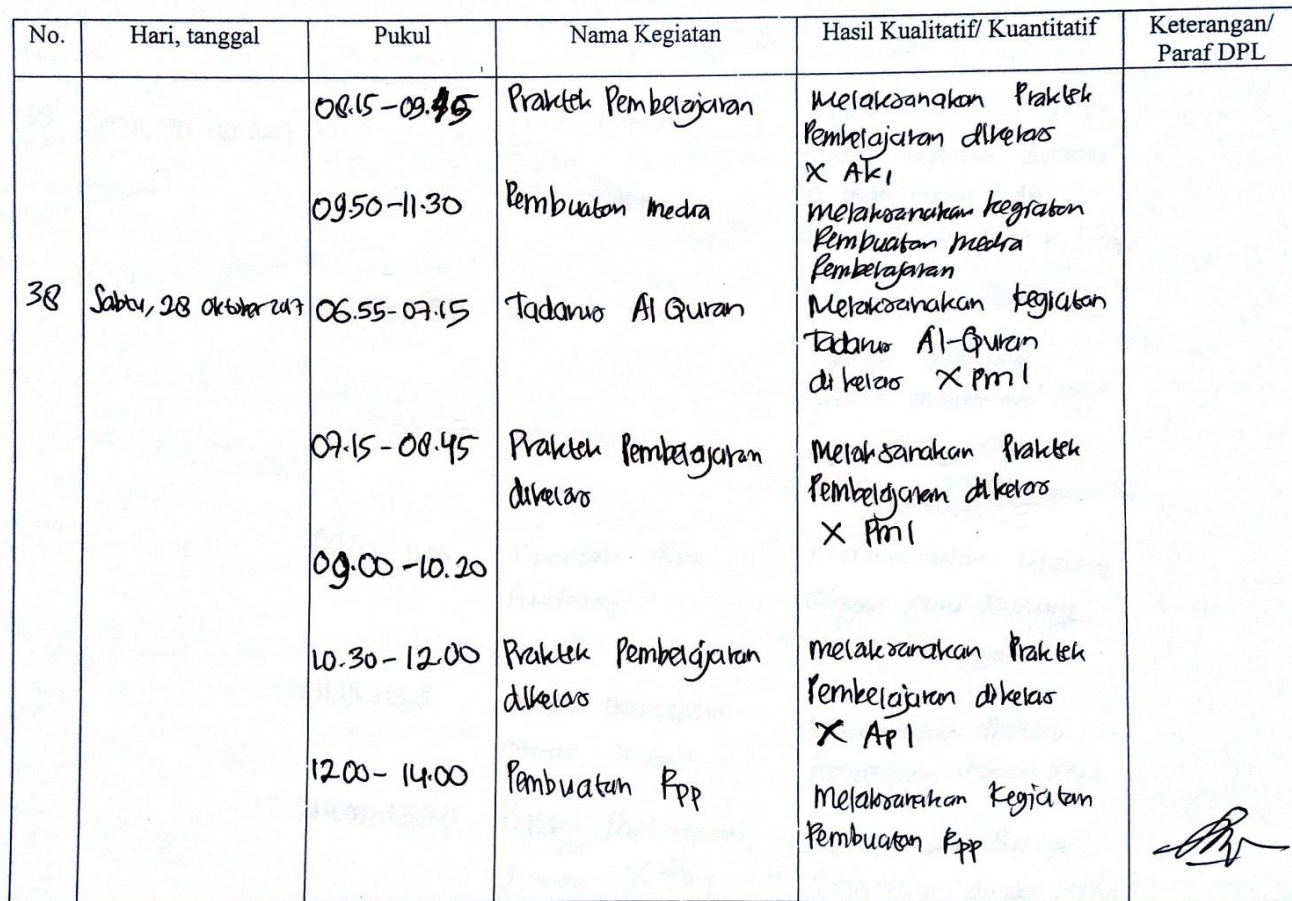 No. Hari, tanggal Pukul Nama Kegiatan Hasil Kualitatif/ Kuantitatif Keterangan/
Paraf DPL
08.15-09.45 Praktek Pembelajaran Melaksanakan Praktek
Pembelajaran dikelas
X AK1
09.50-11.30 Pembuatan media Melaksanakan kegiatan
Pembuatan media
Pembelajaran
38 Sabtu, 28 Oktober 2017 06.55-07.15 Tadarus Al Quran Melaksanakan kegiatan
Tadarus Al-Quran
di kelas X Pm1
07.15-08.45 Praktek Pembelajaran Melaksanakan Praktek
dikelas Pembelajaran dikelas
X Pm1
09.00-10.20
10.30-12.00 Praktek Pembelajaran Melaksanakan Praktek
dikelas Pembelajaran dikelas
X AP1
1200-14.00 Pembuatan RPP Melaksanakan Kegiatan
Pembuatan RPP